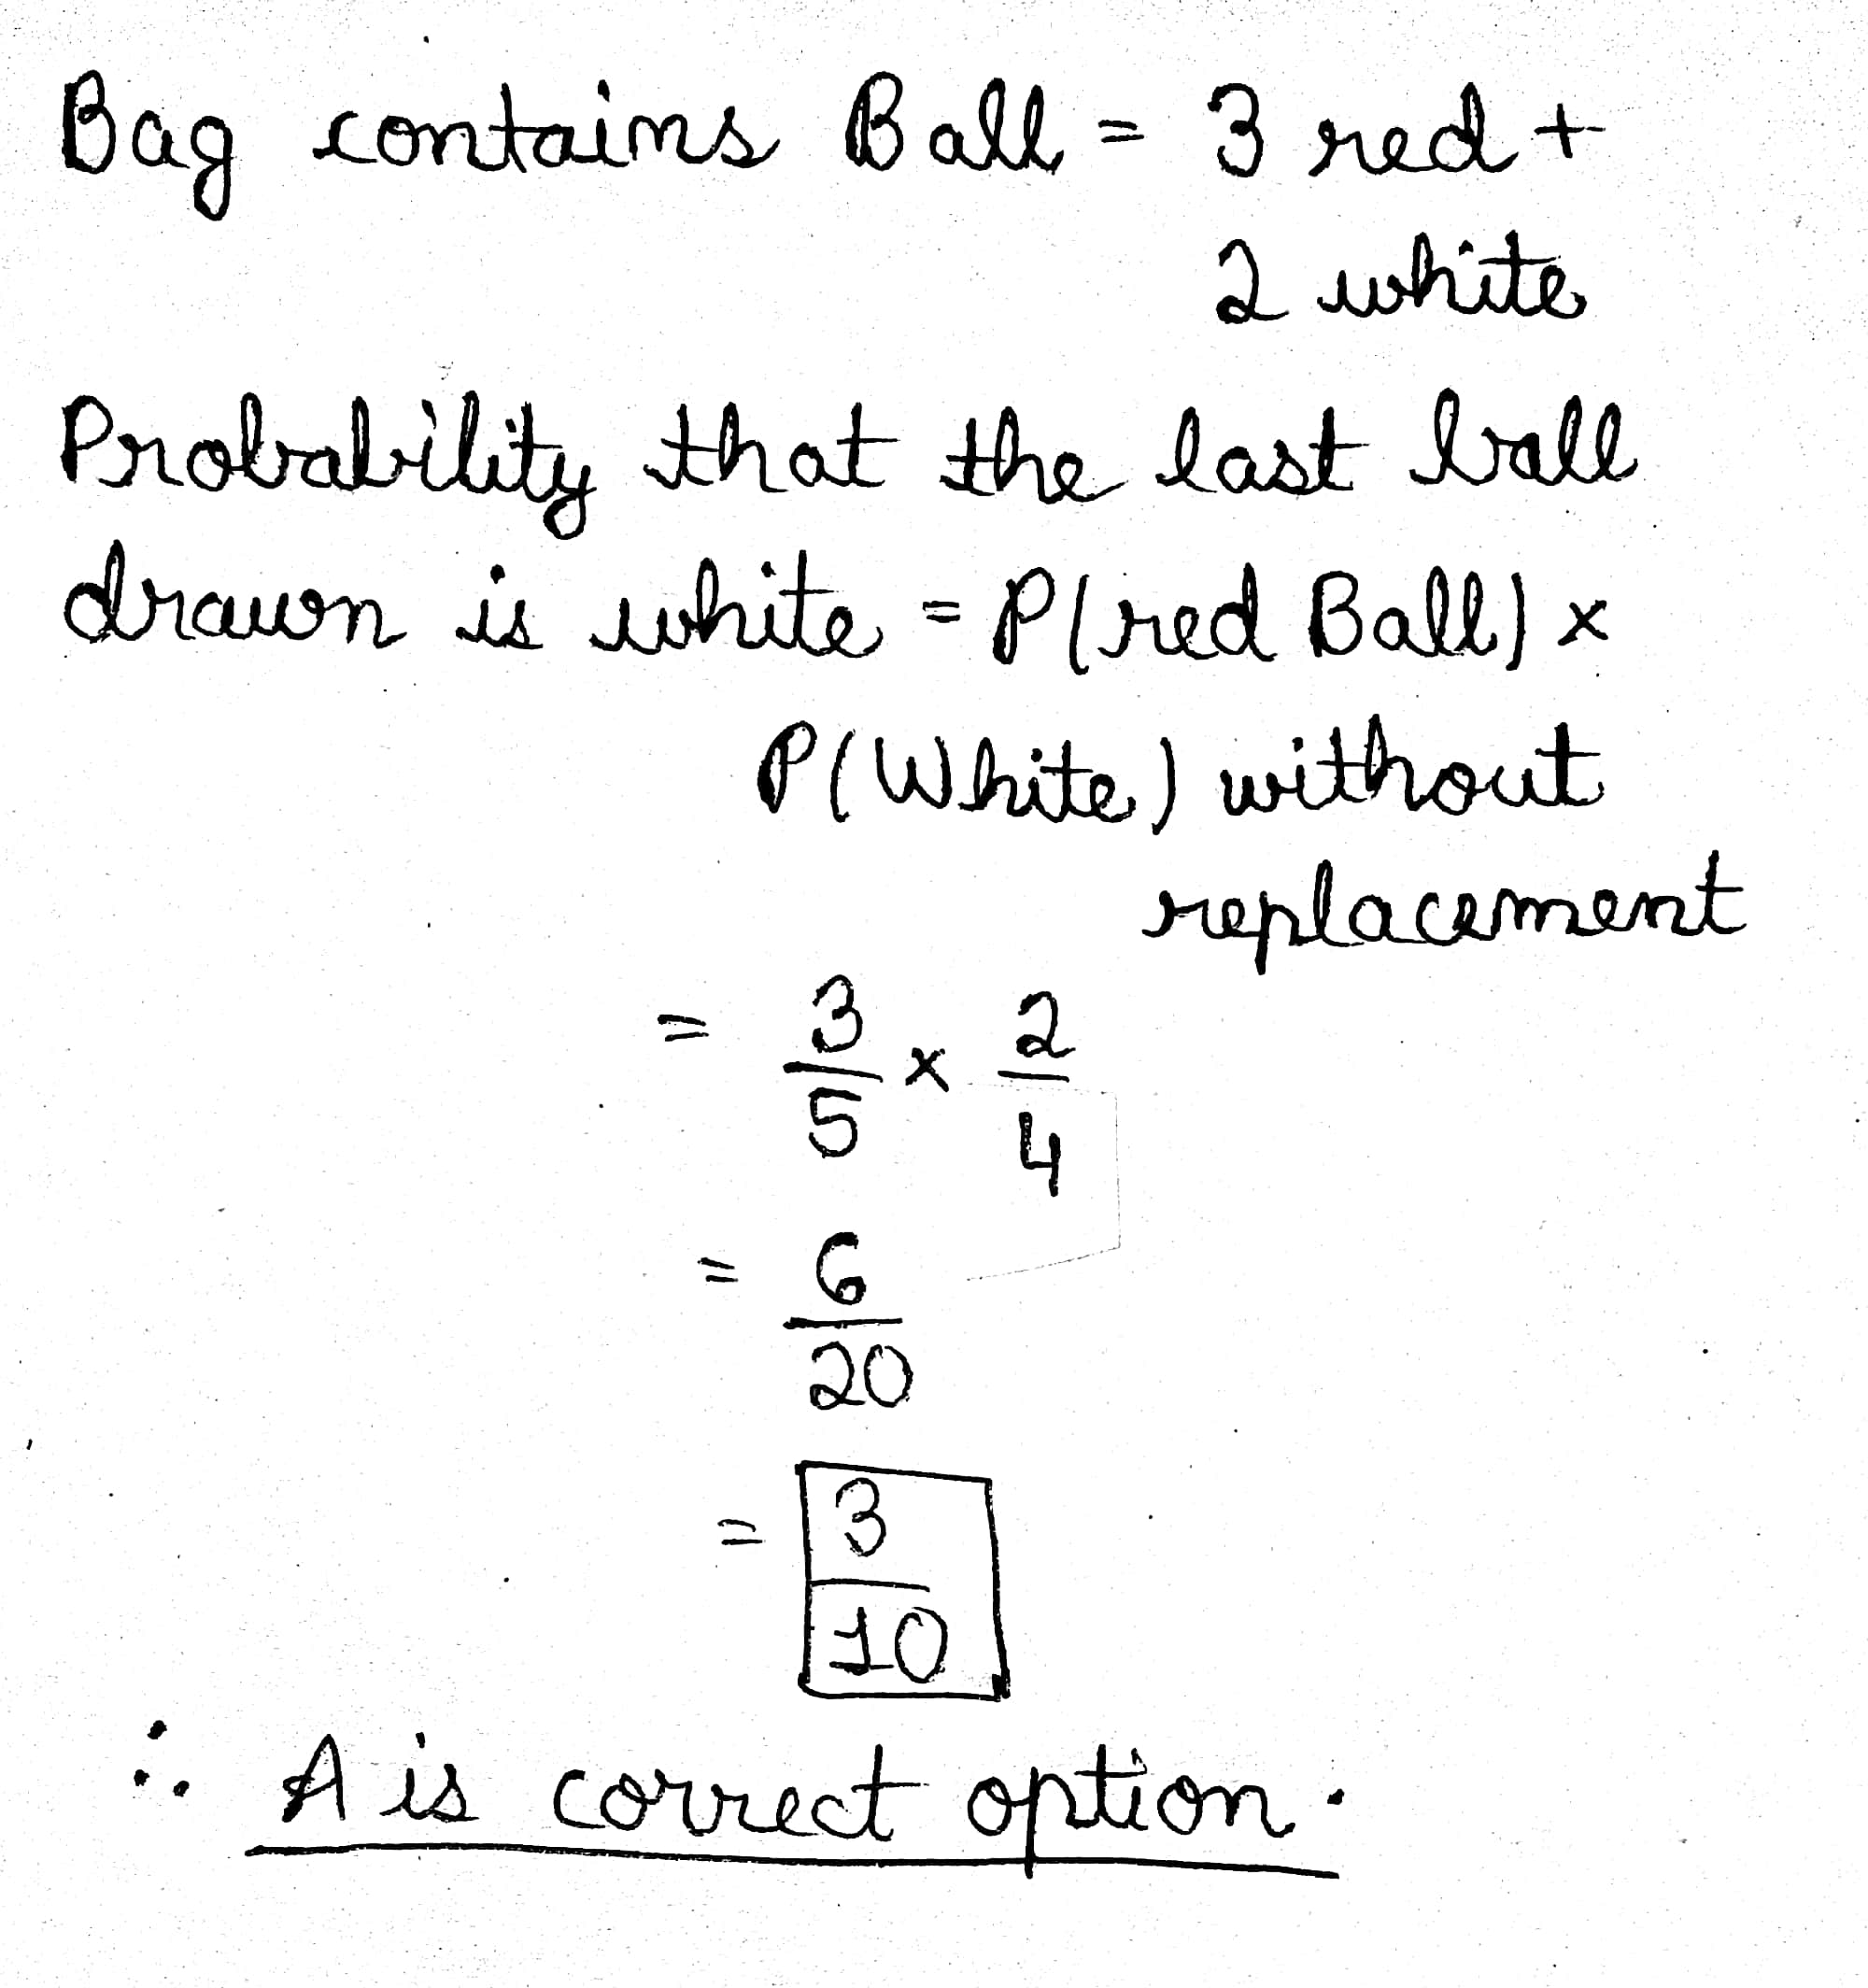 Bag contains Ball = 3 red +
2 white
Probability that the last ball
drawn is white = P(red Ball) ×
P(White) without
replacement
= 3/5 × 2/4
= 6/20
= 3/10
∴ A is correct option.